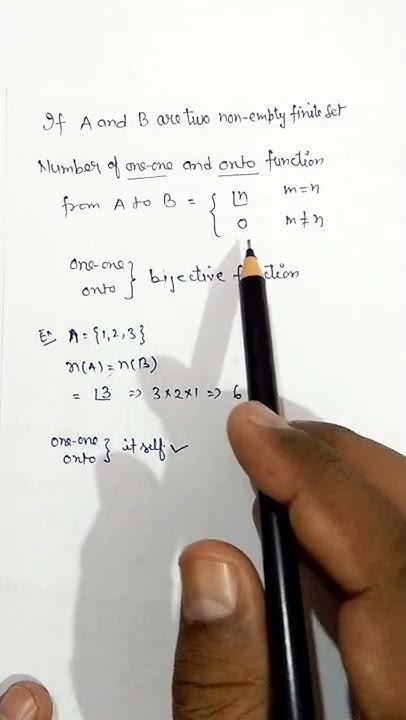 If A and B are two non-empty finite set
Number of one-one and onto function
from A to B = { ⌊n m=n
0 m≠n
one-one
onto } bijective function
Ex A = {1,2,3}
n(A) = n(B)
= ⌊3 => 3×2×1 => 6
one-one
onto } itself ✓